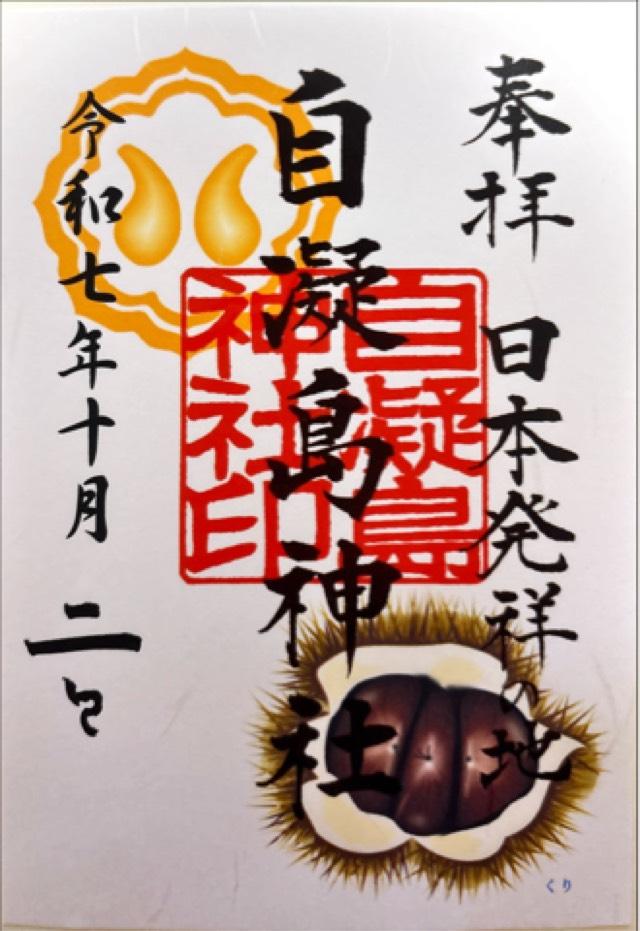 奉拝 日本発祥の地
自凝島神社
自凝島
神社印
令和七年十月二日
くり